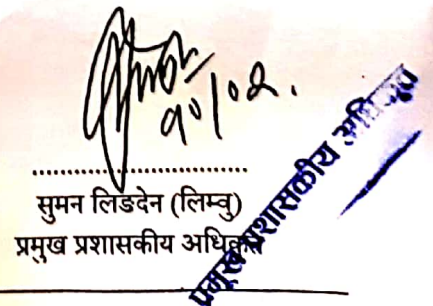 १०।०२.
सुमन लिङदेन (लिम्वु)
प्रमुख प्रशासकीय अधिकृत
प्रमुख प्रशासकीय अधिकृत